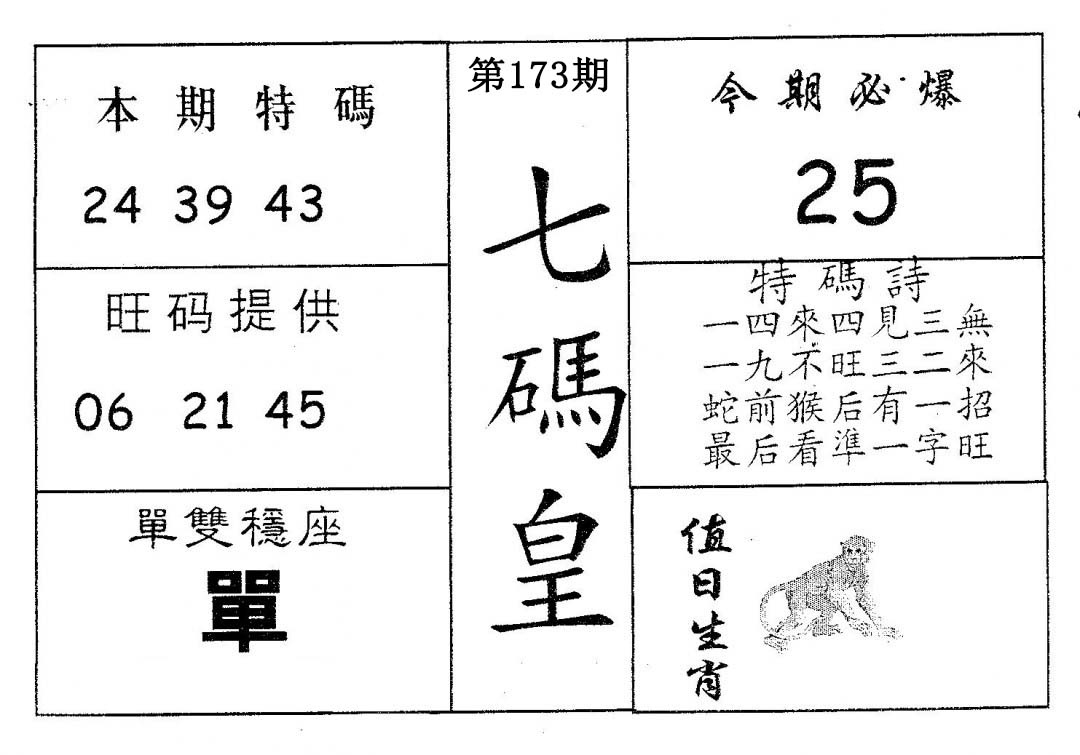 本期特碼
24 39 43
旺码提供
06 21 45
單雙穩座
單
第173期
七碼皇
今期必爆
25
特碼詩
一四來四見三無
一九不旺三二來
蛇前猴后有一招
最后看準一字旺
值日生肖